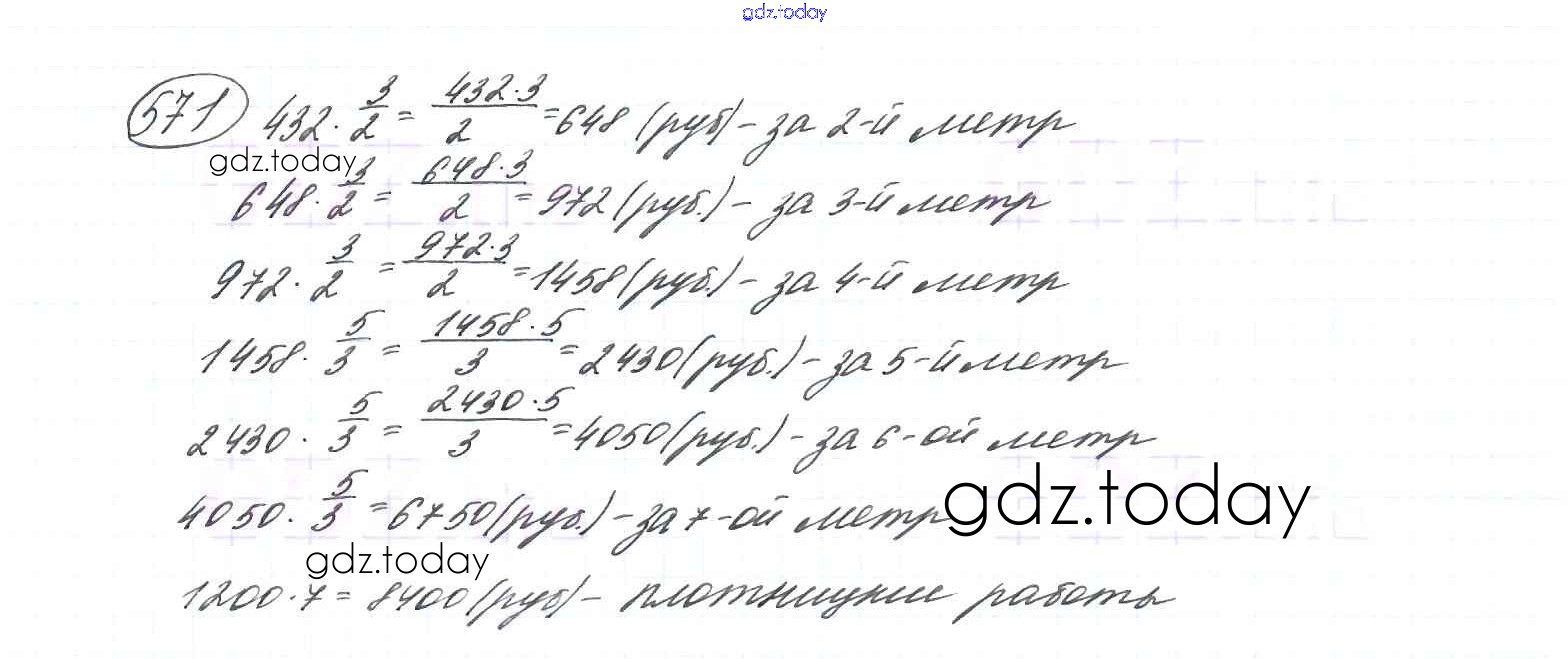 gdz.today
571 432 · 3/2 = 432·3/2 = 648 (руб) – за 2-й метр
gdz.today
648 · 3/2 = 648·3/2 = 972 (руб.) – за 3-й метр
972 · 3/2 = 972·3/2 = 1458 (руб.) – за 4-й метр
1458 · 5/3 = 1458·5/3 = 2430 (руб.) – за 5-й метр
2430 · 5/3 = 2430·5/3 = 4050 (руб.) – за 6-ой метр
4050 · 5/3 = 6750 (руб.) – за 7-ой метр
gdz.today
gdz.today
1200·7 = 8400 (руб) – плотницкие работы